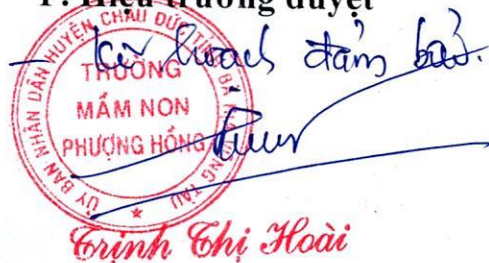 P. Hiệu trưởng duyệt
- kế hoạch đảm bảo.
ỦY BAN NHÂN DÂN HUYỆN CHÂU ĐỨC TỈNH BÀ RỊA VŨNG TÀU
TRƯỜNG
MẦM NON
PHƯỢNG HỒNG
Trịnh Thị Hoài